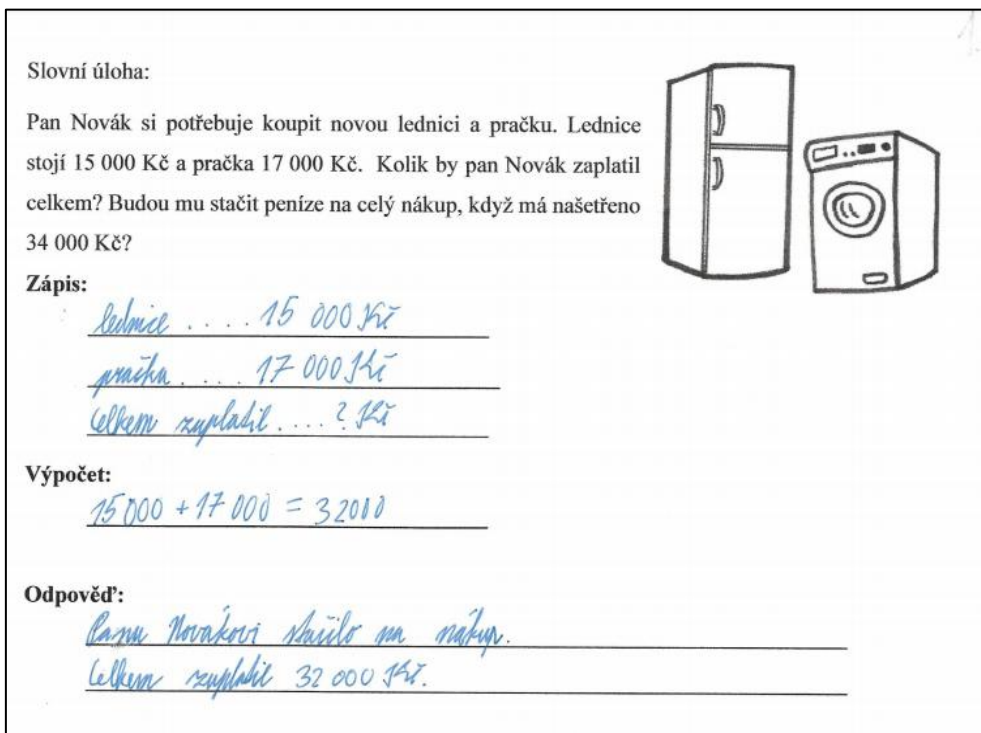 1.
Slovní úloha:
Pan Novák si potřebuje koupit novou lednici a pračku. Lednice
stojí 15 000 Kč a pračka 17 000 Kč. Kolik by pan Novák zaplatil
celkem? Budou mu stačit peníze na celý nákup, když má našetřeno
34 000 Kč?
Zápis:
lednice .... 15 000 Kč
pračka .... 17 000 Kč
Celkem zaplatil .... ? Kč
Výpočet:
15 000 + 17 000 = 32000
Odpověď:
Panu Novákovi stačilo na nákup.
Celkem zaplatil 32 000 Kč.